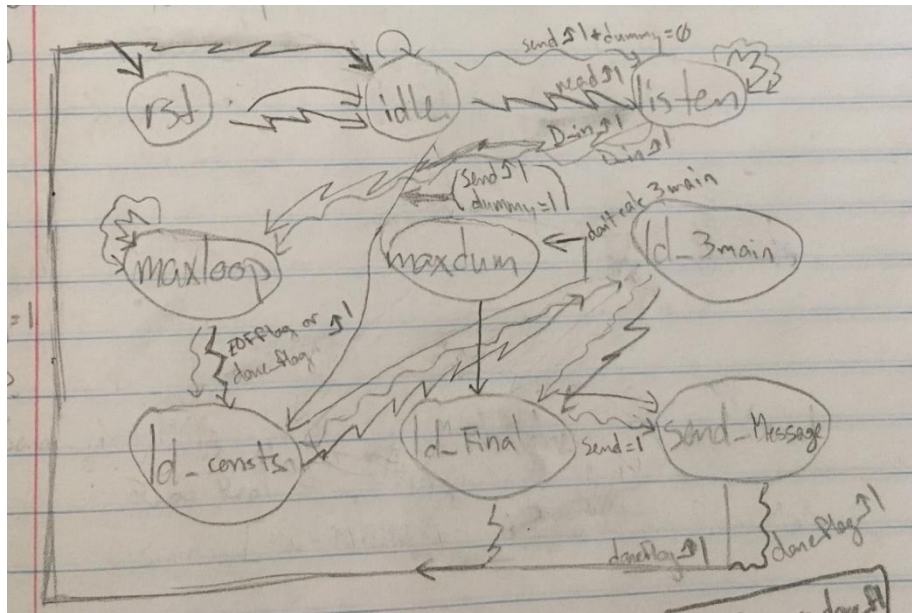 send↑1+dummy=0
rst
idle
read↑1
listen
D_in↑1
D_in↑1
send↑1
dummy=1
don't calc 3main
maxloop
maxdum
ld_3main
=1
EOFflag or ↑1
done_flag
ld_consts
ld_Final
send=1
send_Message
doneflag↑1
doneflag↑1